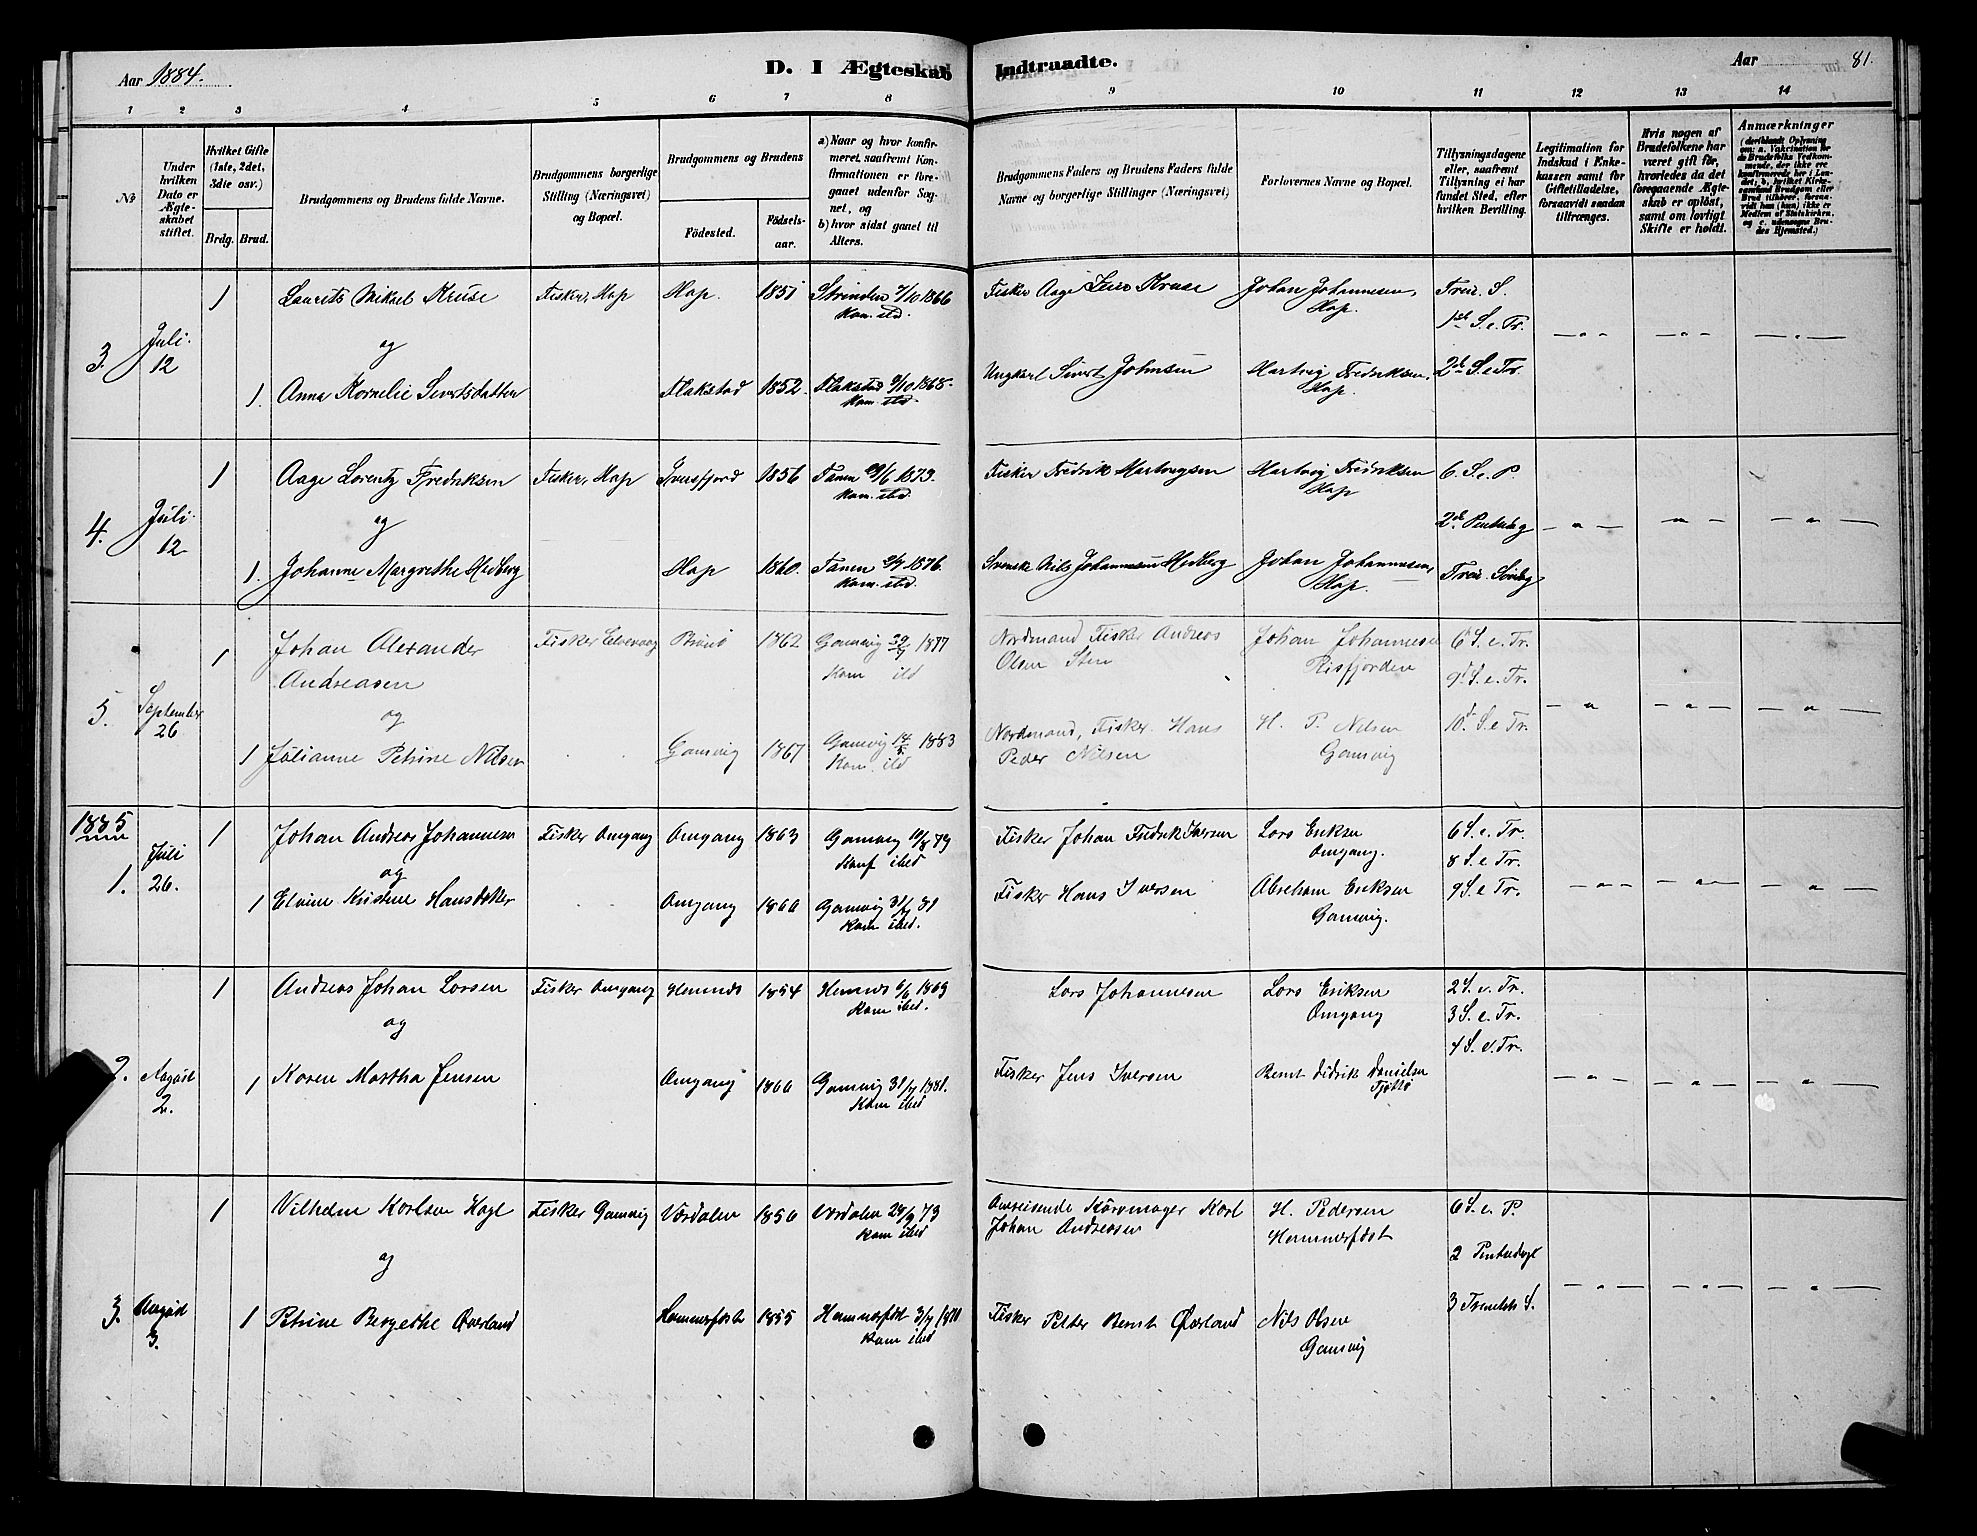 Aar 1884.
D. I Ægteskab Indtraadte.
Aar 81.
1 2 3 4 5 6 7 8 9 10 11 12 13 14
№
Under hvilken Dato er Ægteskabet stiftet.
Hvilket Gifte (1ste, 2det, 3die osv.)
Brdg. Brud.
Brudgommens og Brudens fulde Navne.
Brudgommens borgerlige Stilling (Næringsvei) og Bopæl.
Brudgommens og Brudens
Födested. Födselsaar.
a) Naar og hvor konfirmeret, saafremt Konfirmationen er foregaaet udenfor Sognet, og
b) hvor sidst gaaet til Alters.
Brudgommens Faders og Brudens Faders fulde Navne og borgerlige Stillinger (Næringsvei)
Forlovernes Navne og Bopæl.
Tillysningsdagene eller, saafremt Tillysning ei har fundet Sted, efter hvilken Bevilling.
Legitimation for Indskud i Enkekassen samt for Giftetilladelse, forsaavidt saadan tiltrænges.
Hvis nogen af Brudefolkene har været gift för, hvorledes da det foregaaende Ægteskab er oplöst, samt om lovligt Skifte er holdt.
Anmærkninger
3. Juli 12
1 Laurits Mikal Kruse Fisker, Hop Hop. 1851 Strinden 7/10 1866 Kom. std. Fisker Aage Kruse Johan Johannesen, Hop. Trei. S.
1ste S. e. Tr.
og
1. Anna Kornelie Sivertsdatter Flakstad 1852. Flakstad 9/10 1868. Kom. std Ungkarl Sivert Johnsen Hartvig Fredriksen, Hop. 2de S. e. Tr.
4. Juli 12
1 Aage Lorentz Fredriksen Fisker, Hop Iversfjord 1856 Tanen 1873. Kom. std Fisker Fredrik Hartvigsen Hartvig Fredriksen Hop 6. S. e. P.
og
2de Pintsedag
1. Johanne Margrethe Hedberg Hop 1860. Tanen 1876. Kom. std. Svensk Nils Johannesen Hedberg Johan Johannesen Hop. Trei. Söndag
5. September 26
1 Johan Alexander Andreasen Fisker 1862 Gamvig 1877 Kom ild Nordmand Fisker Andreas Olsen Johan Johannesen Risfjorden 6. S. e. Tr.
9. S. e. Tr.
og
1 Julianne Petrine Nilsen Gamvig 1867 Gamvig 1883 Kom. ild Nordmand, Fisker Hans Peder Nilsen H. P. Nilsen Gamvig 10. S. e Tr.
1885
1. Juli 26.
1 Johan Andreas Johannesen Fisker Omgang Omgang 1863 Gamvig 79 Konf ibid Fisker Johan Fredrik Iversen Lars Eriksen Omgang. 6 S. e. Tr.
8 S. e. Tr.
og
1 Kristine Hansdatter Omgang 1866 Gamvig 31/7 81 Kom ibid. Fisker Hans Iversen Abraham Eriksen Gamvig. 9 S. e Tr.
2. August 2.
1 Andreas Johan Larsen Fisker Omgang Hemnes 1854 Hemnes 6/6 1869 Kom ibid. Lars Johannesen Lars Eriksen Omgang 2 S. e. Tr.
3 S. e. Tr.
4 S. e. Tr.
og
1 Karen Martha Jensen Omgang 1866 Gamvig 31/7 1881. Kom ibid Fisker Jens Iversen Bernt Didrik Danielsen Tjötta
3. August 3.
1 Vilhelm Karlsen Fisker Gamvig Værdalen 1856 Værdalen 73 Kom ibid Omreisende Karl Johan Andreassen H. Pedersen Hammerfest 6 S. e. P.
2 Pintsedagl
og
1 Petrine Bergethe Overland Hammerfest 1855 Hammerfest Kom ibid Fisker Petter Bernt Nils Olsen Gamvig 3